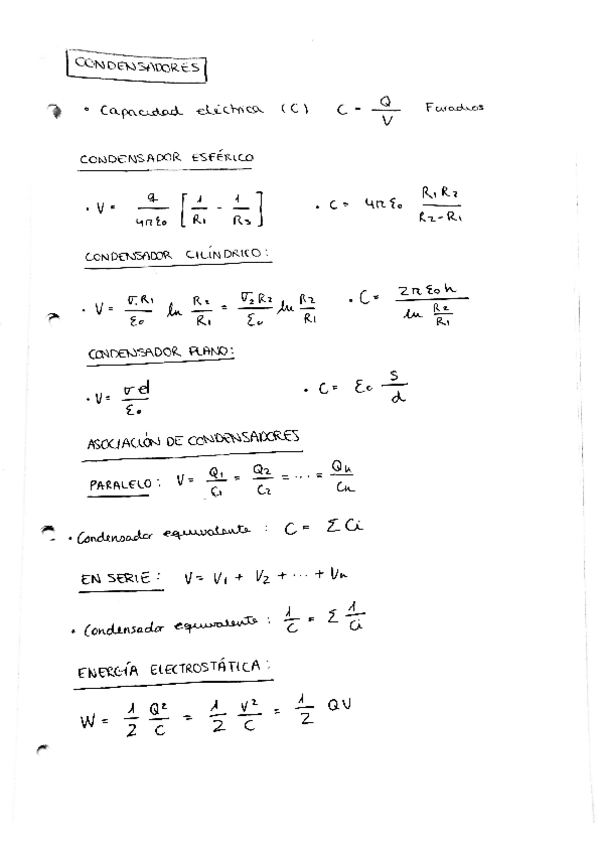 CONDENSADORES
• Capacidad eléctrica (C) C = Q/V Faradios
CONDENSADOR ESFÉRICO
• V = q/4πε₀ [1/R₁ - 1/R₂] • C = 4πε₀ R₁R₂/R₂-R₁
CONDENSADOR CILÍNDRICO:
• V = σ₁R₁/ε₀ ln R₂/R₁ = σ₂R₂/ε₀ ln R₂/R₁ • C = 2πε₀h/ln R₂/R₁
CONDENSADOR PLANO:
• V = σd/ε₀ • C = ε₀ S/d
ASOCIACIÓN DE CONDENSADORES
PARALELO: V = Q₁/C₁ = Q₂/C₂ = ... = Qn/Cn
• Condensador equivalente : C = ΣCi
EN SERIE: V = V₁ + V₂ + ... + Vn
• Condensador equivalente : 1/C = Σ 1/Ci
ENERGÍA ELECTROSTÁTICA:
W = 1/2 Q²/C = 1/2 V²/C = 1/2 QV